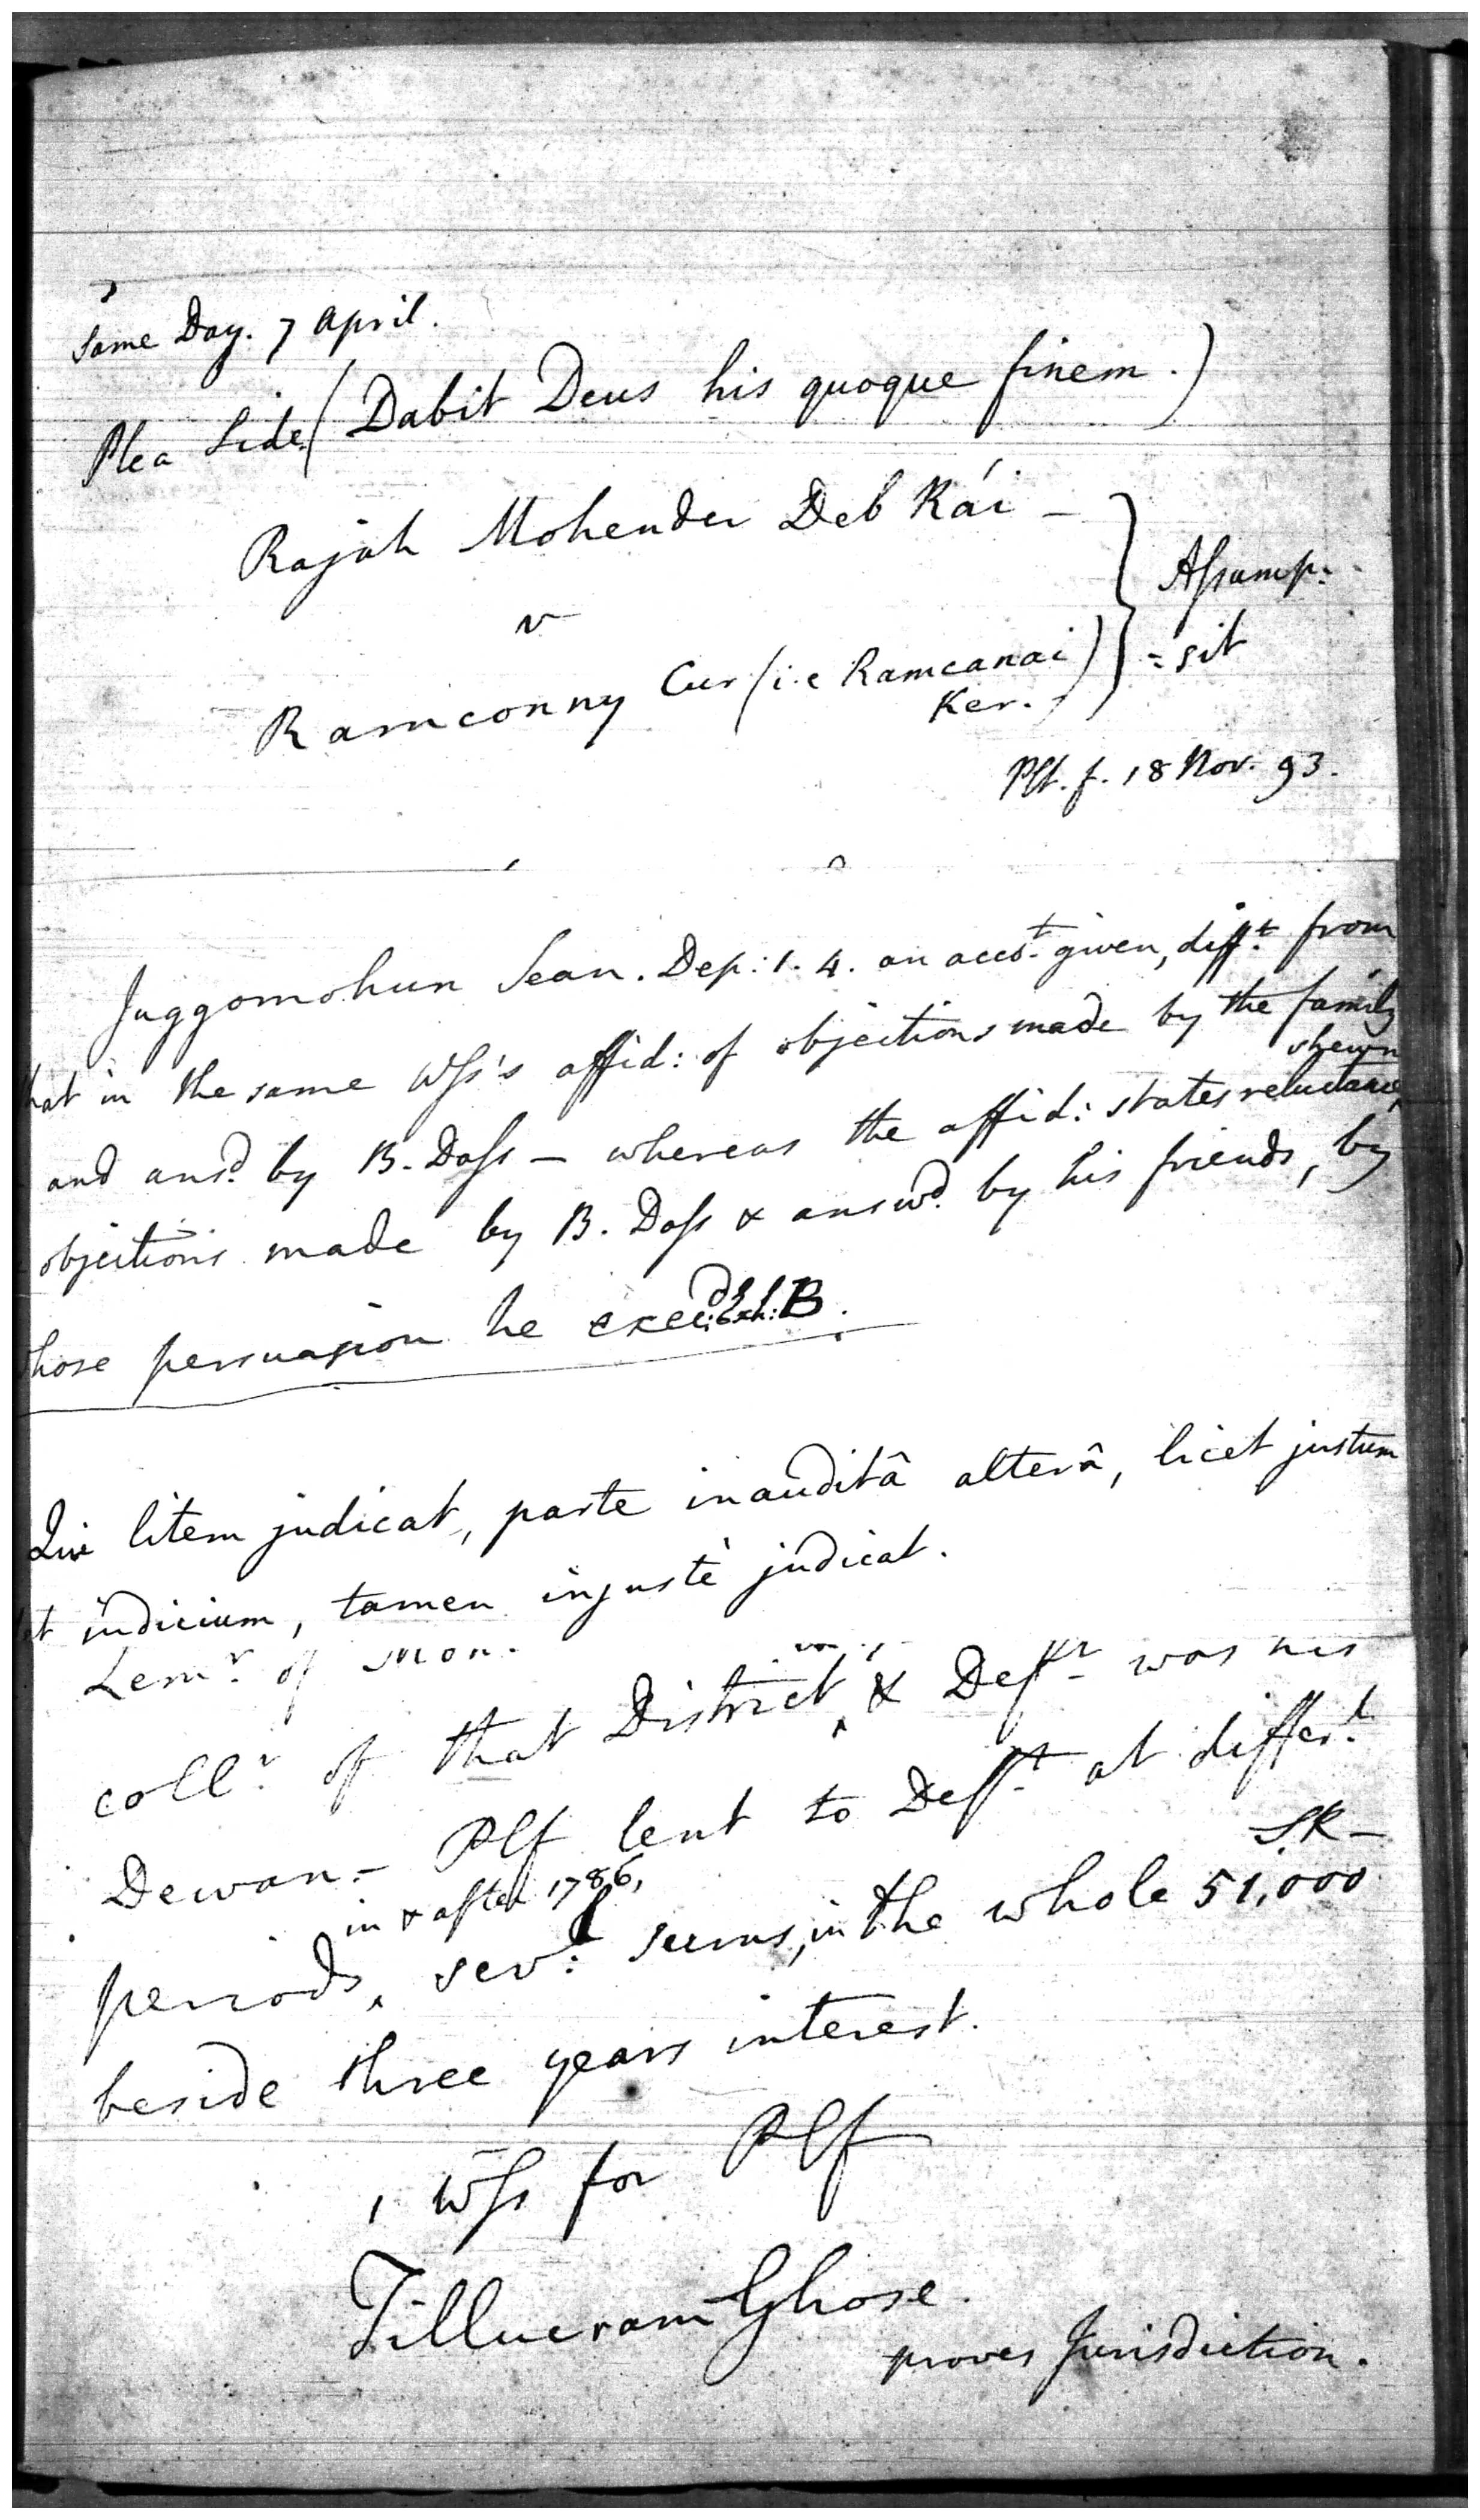 Same Day. 7 April.
Plea Side. (Dabit Deus his quoque finem.)
Rajah Mohender Deb Rái –
v
Ramconny Cur (i.e Ramcanai
Ker.)
Assump:
=sit
Plt. f. 18 Nov. 93.
Juggomohun Sean. Dep: 1. 4. an acct. given, difft. from
hat in the same Wss's affid: of objections made by the family
and ansd. by B. Doss – whereas the affid: states reluctance,
shewn
objections made by B. Doss & answd. by his friends, by
hose persuasion he execd: Exh: B.
Qui litem judicat, parte inauditâ alterâ, licet justum
et judicium, tamen injustè judicat.
Zemr. of Mon.
collr. of that District, & Deft. was his
Dewan – Plf lent to Deft. at differt.
in & after 1786,
SR –
periods, sevl: sums, in the whole 51,000
beside three years interest.
1 Wss for Plf
Tillucram Ghose.
proves Jurisdiction.